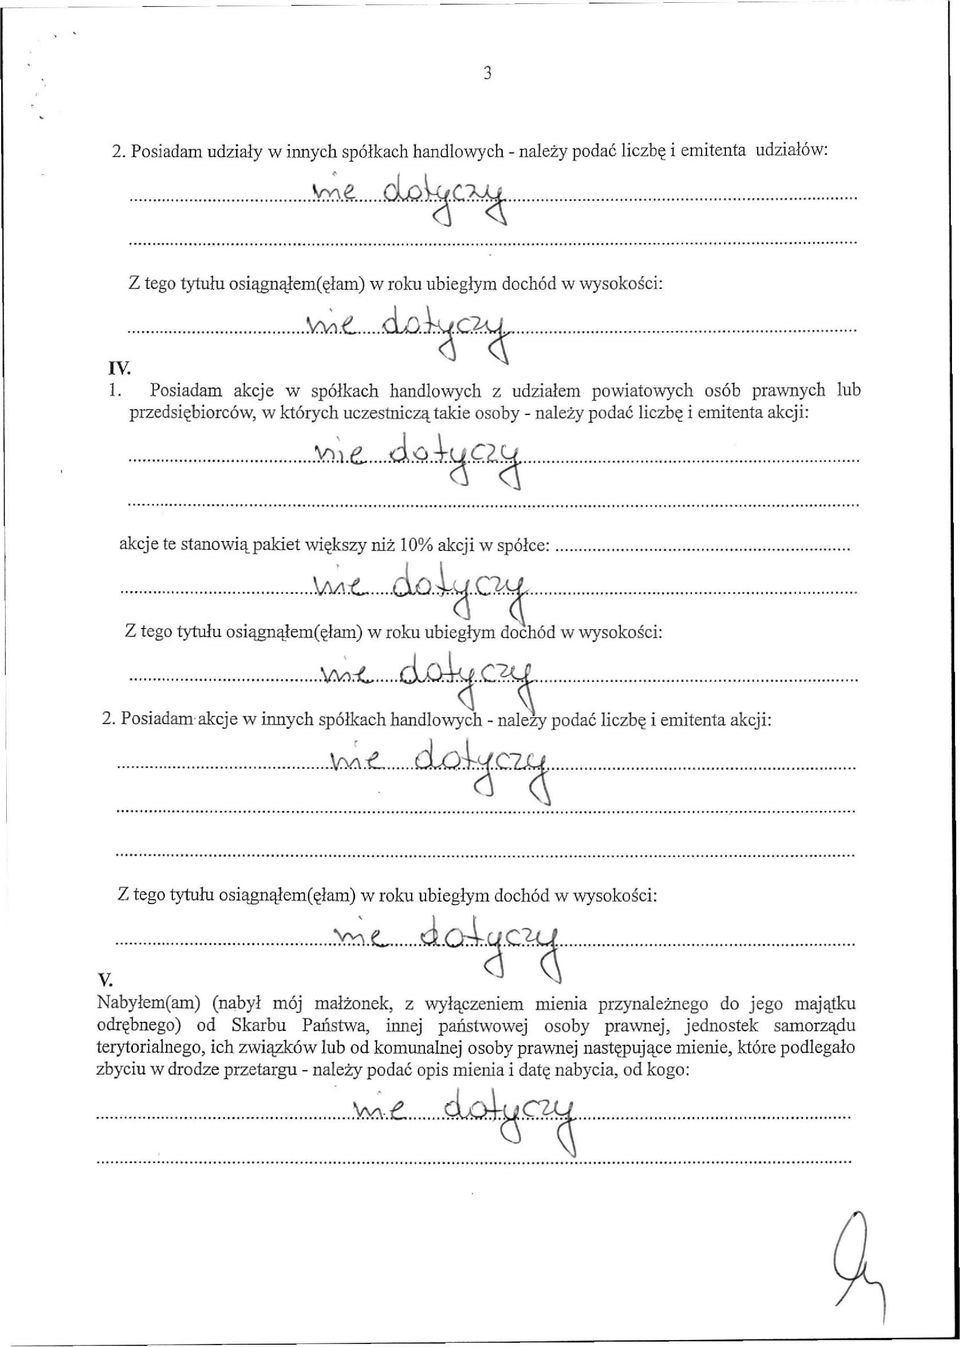 3
2. Posiadam udziały w innych spółkach handlowych - należy podać liczbę i emitenta udziałów:
nie dotyczy
Z tego tytułu osiągnąłem(ęłam) w roku ubiegłym dochód w wysokości:
nie dotyczy
IV.
1. Posiadam akcje w spółkach handlowych z udziałem powiatowych osób prawnych lub
przedsiębiorców, w których uczestniczą takie osoby - należy podać liczbę i emitenta akcji:
nie dotyczy
akcje te stanowią pakiet większy niż 10% akcji w spółce:
nie dotyczy
Z tego tytułu osiągnąłem(ęłam) w roku ubiegłym dochód w wysokości:
nie dotyczy
2. Posiadam akcje w innych spółkach handlowych - należy podać liczbę i emitenta akcji:
nie dotyczy
Z tego tytułu osiągnąłem(ęłam) w roku ubiegłym dochód w wysokości:
nie dotyczy
V.
Nabyłem(am) (nabył mój małżonek, z wyłączeniem mienia przynależnego do jego majątku
odrębnego) od Skarbu Państwa, innej państwowej osoby prawnej, jednostek samorządu
terytorialnego, ich związków lub od komunalnej osoby prawnej następujące mienie, które podlegało
zbyciu w drodze przetargu - należy podać opis mienia i datę nabycia, od kogo:
nie dotyczy